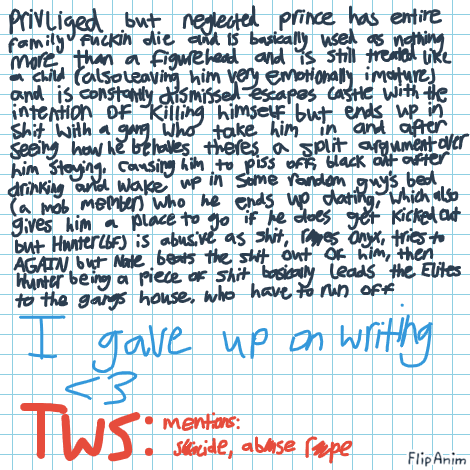 privliged but neglected prince has entire
family fuckin die and is basically used as nothing
more than a figurehead and is still treated like
a child (also leaving him very emotionally imature)
and is constantly dismissed escapes castle with the
intention of killing himself but ends up in
shit with a gang who take him in and after
seeing how he behaves theres a split argument over
him staying, causing him to piss off, black out after
drinking and wake up in some random guy's bed
(a mob member) who he ends up dating, which also
gives him a place to go if he does get kicked out
but Hunter (bf) is abusive as shit, rapes onyx, tries to
AGAIN but Nate beats the shit out of him, then
Hunter being a piece of shit basically leads the Elites
to the gangs house, who have to run off
I gave up on writing
<3
TWS: mentions:
suicide, abuse rape
FlipAnim